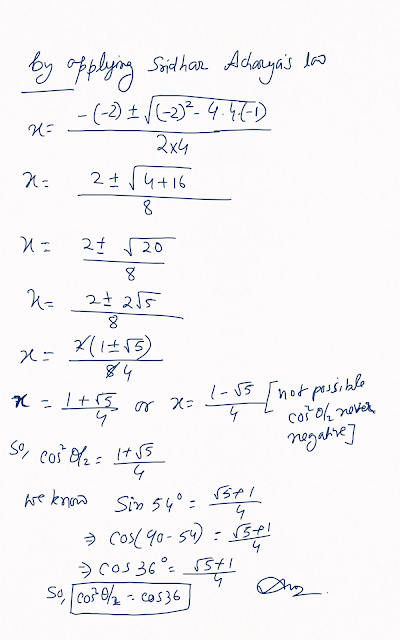 by applying Sridhar Acharya's law
x = -(-2) ± √((-2)² - 4.4.(-1)) / 2x4
x = 2 ± √(4+16) / 8
x = 2 ± √20 / 8
x = 2 ± 2√5 / 8
x = 2(1±√5) / 8 4
x = 1+√5 / 4 or x = 1-√5 / 4 [not possible cos² θ/2 never negative]
So, cos² θ/2 = 1+√5 / 4
we know Sin 54° = √5+1 / 4
⇒ cos(90-54) = √5+1 / 4
⇒ cos 36° = √5+1 / 4
So, cos² θ/2 = cos36 Ans